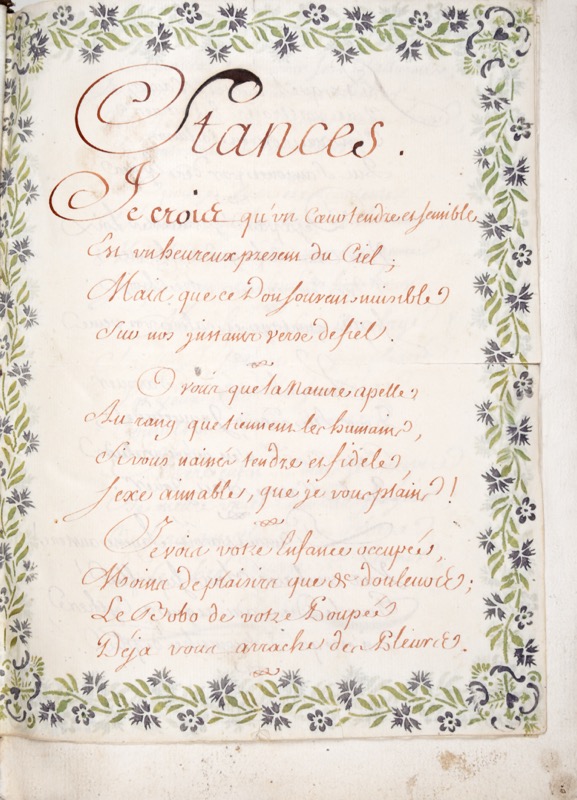 Stances.
Je crois qu'un Cœur tendre et sensible
Est un heureux present du Ciel;
Mais que ce Don souvent nuisible
Sur nos instans verse de fiel.
O vous que la Nature apelle
Au rang que tiennent les humains,
Si vous naines tendre et fidele,
Sexe aimable, que je vous plains!
Je vois votre Enfance occupée,
Moins de plaisirs que de douleurs;
Le Bobo de votre Poupée
Déja vous arrache des Pleurs.